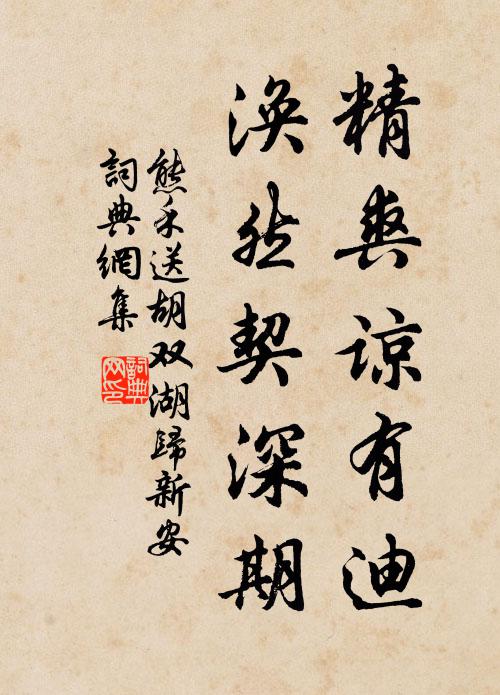 精爽谅有迪
涣然契深期
熊禾送胡双湖歸新安
詞典網集
詞典网印